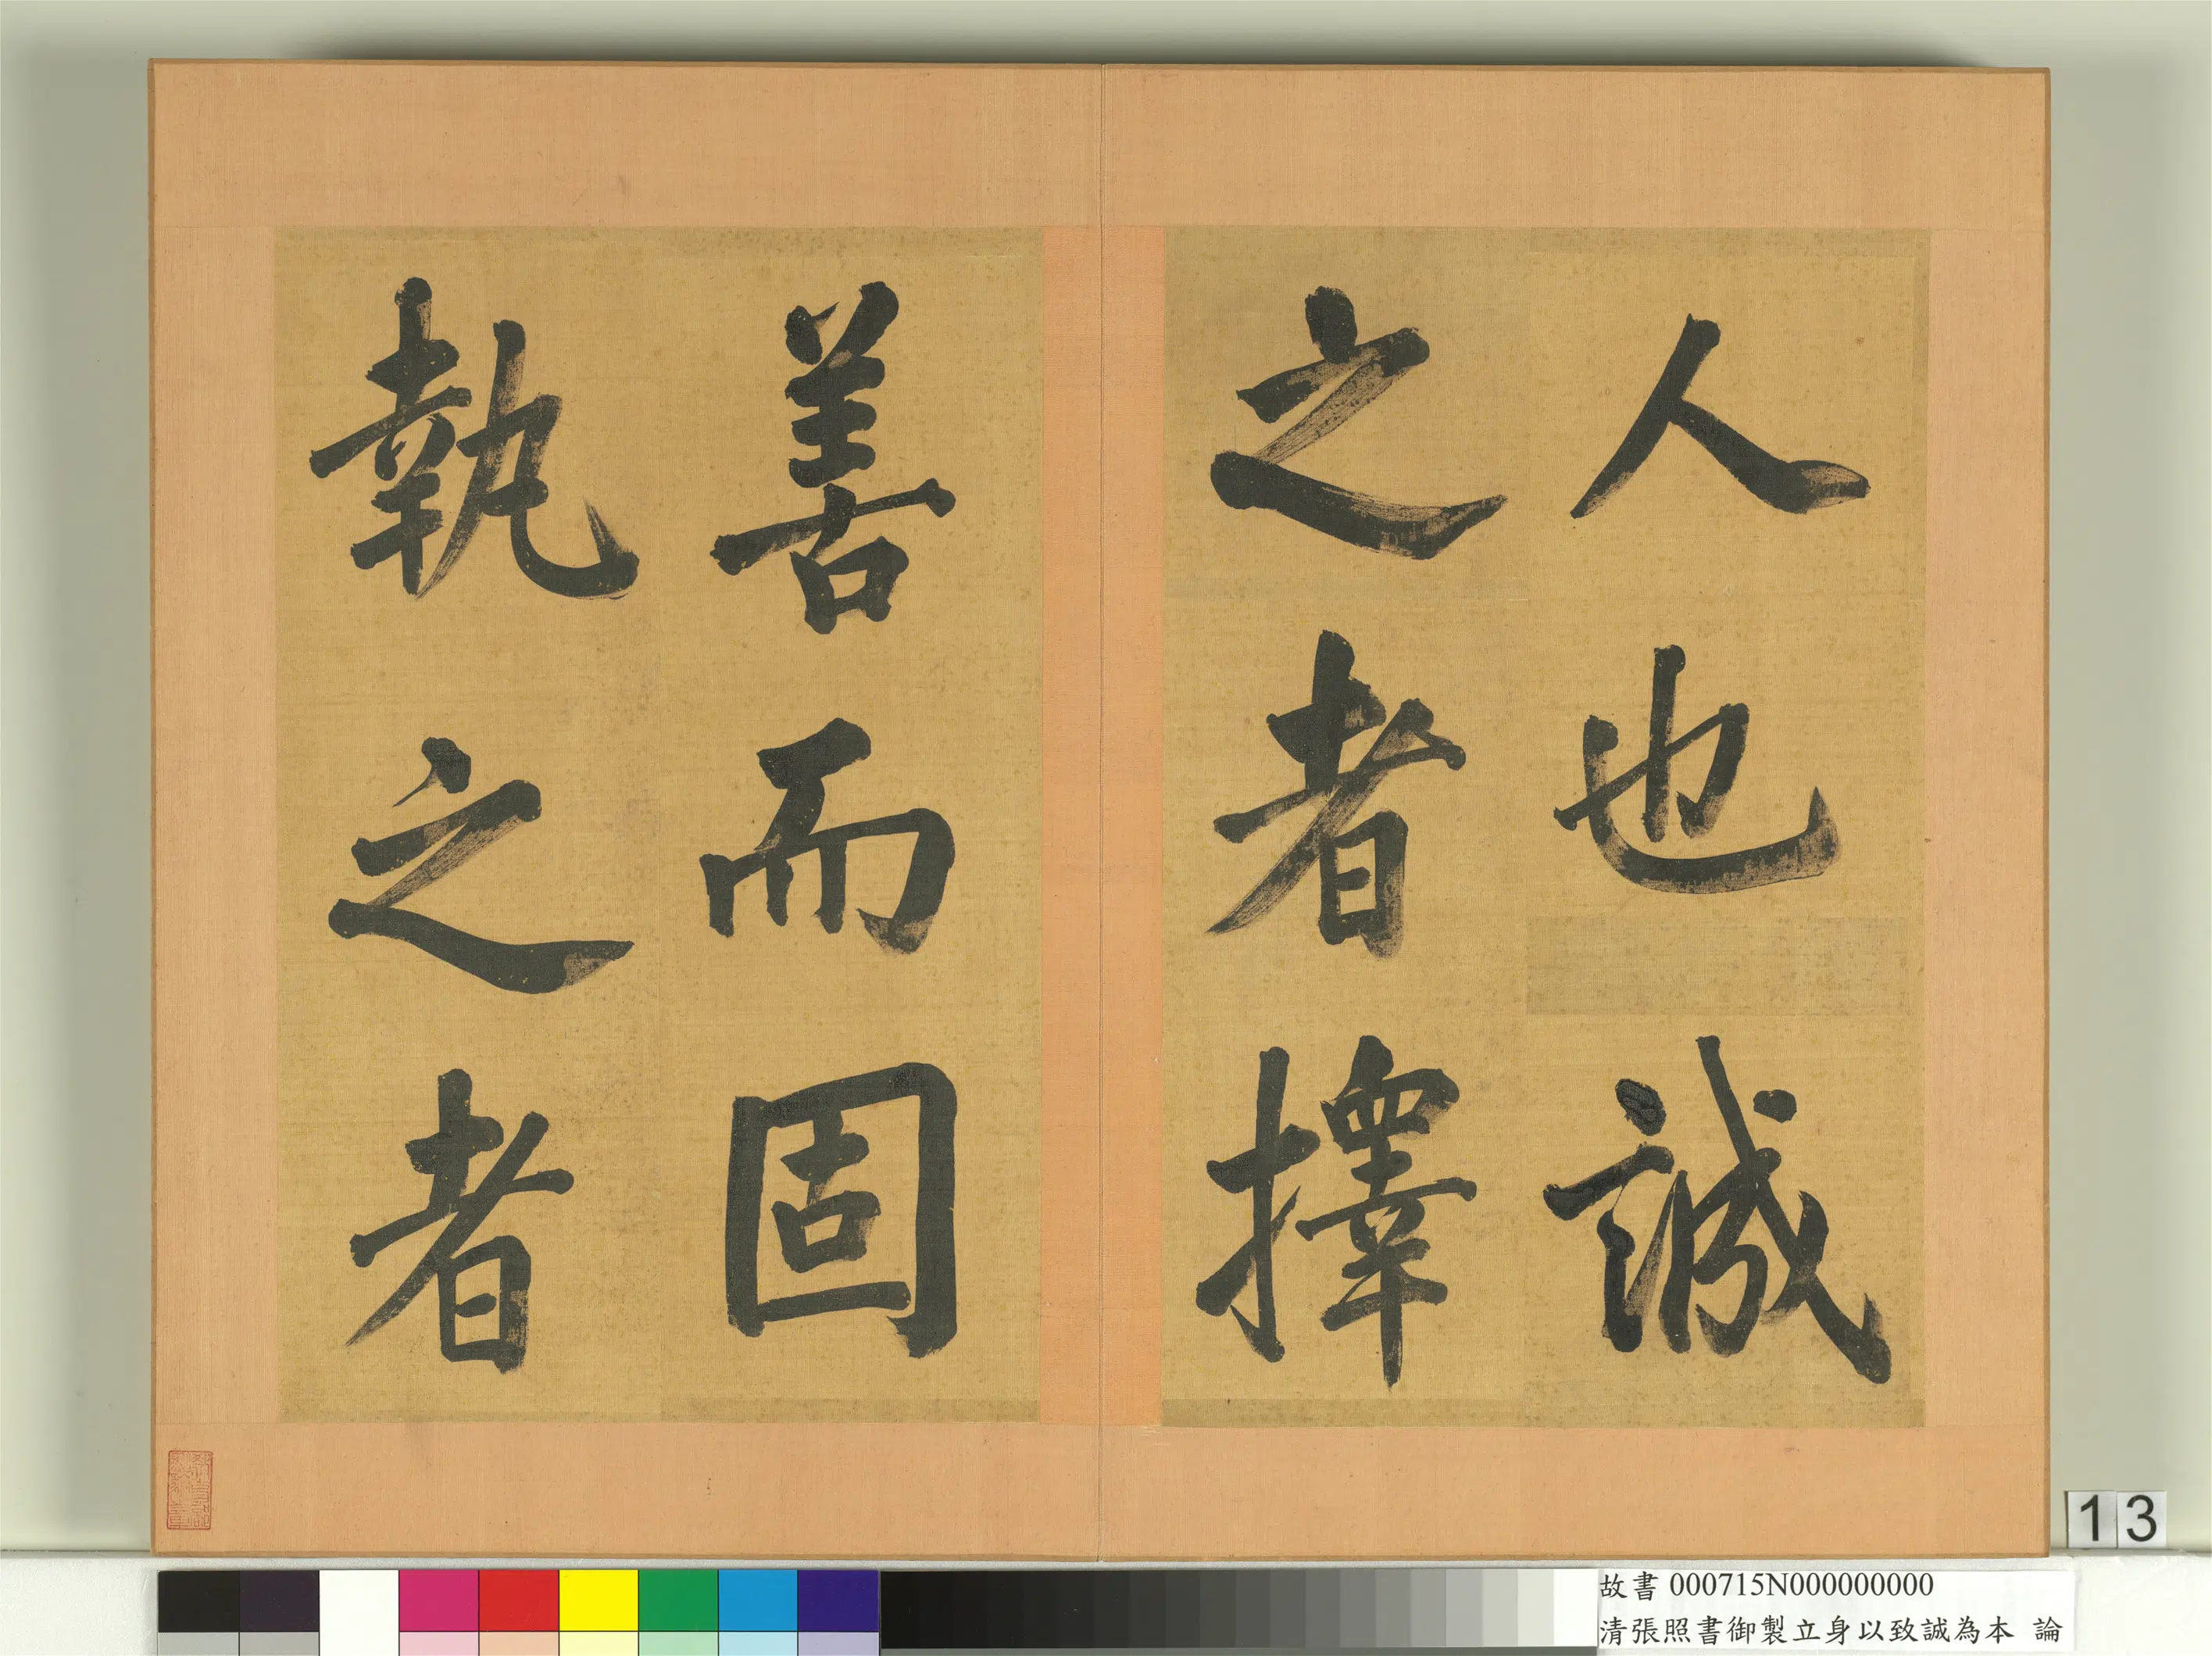 人也誠
之者擇
善而固
執之者
13
故書 000715N000000000
清張照書御製立身以致誠為本 論